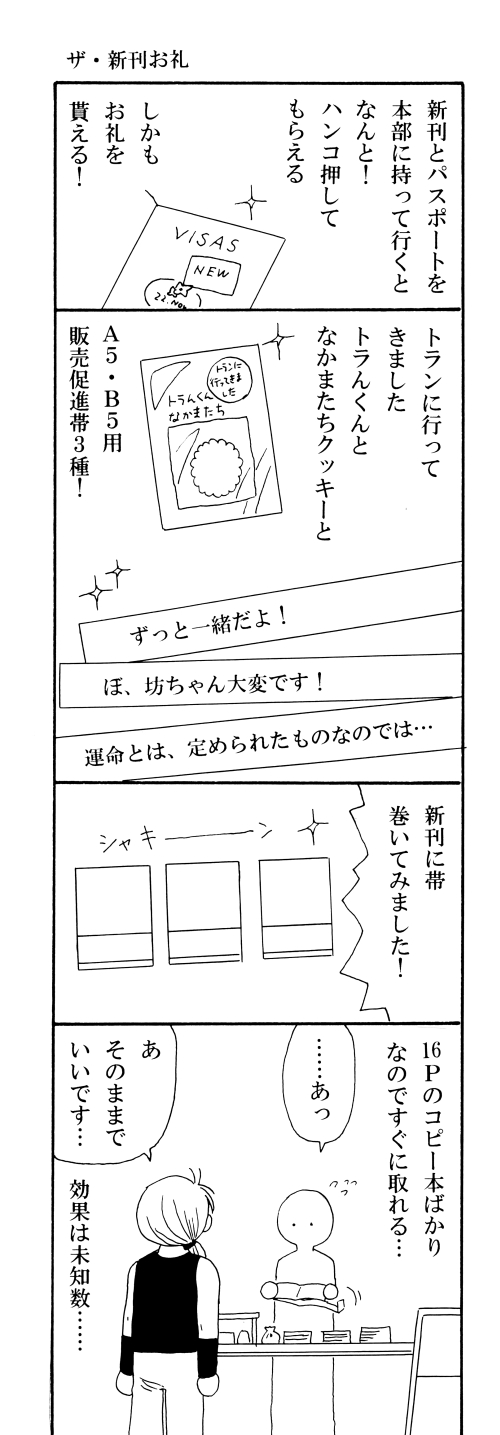 ザ・新刊お礼
新刊とパスポートを
本部に持って行くと
なんと！
ハンコ押して
もらえる
しかも
お礼を
貰える！
VISAS
NEW
22.Nov
トランに行って
きました
トラんくんと
なかまたちクッキーと
トランに
行ってきま
した
トラんくん
なかまたち
A5・B5用
販売促進帯3種！
ずっと一緒だよ！
ぼ、坊ちゃん大変です！
運命とは、定められたものなのでは…
新刊に帯
巻いてみました！
シャキーーン
16Pのコピー本ばかり
なのですぐに取れる…
……あっ
あ
そのままで
いいです…
効果は未知数……